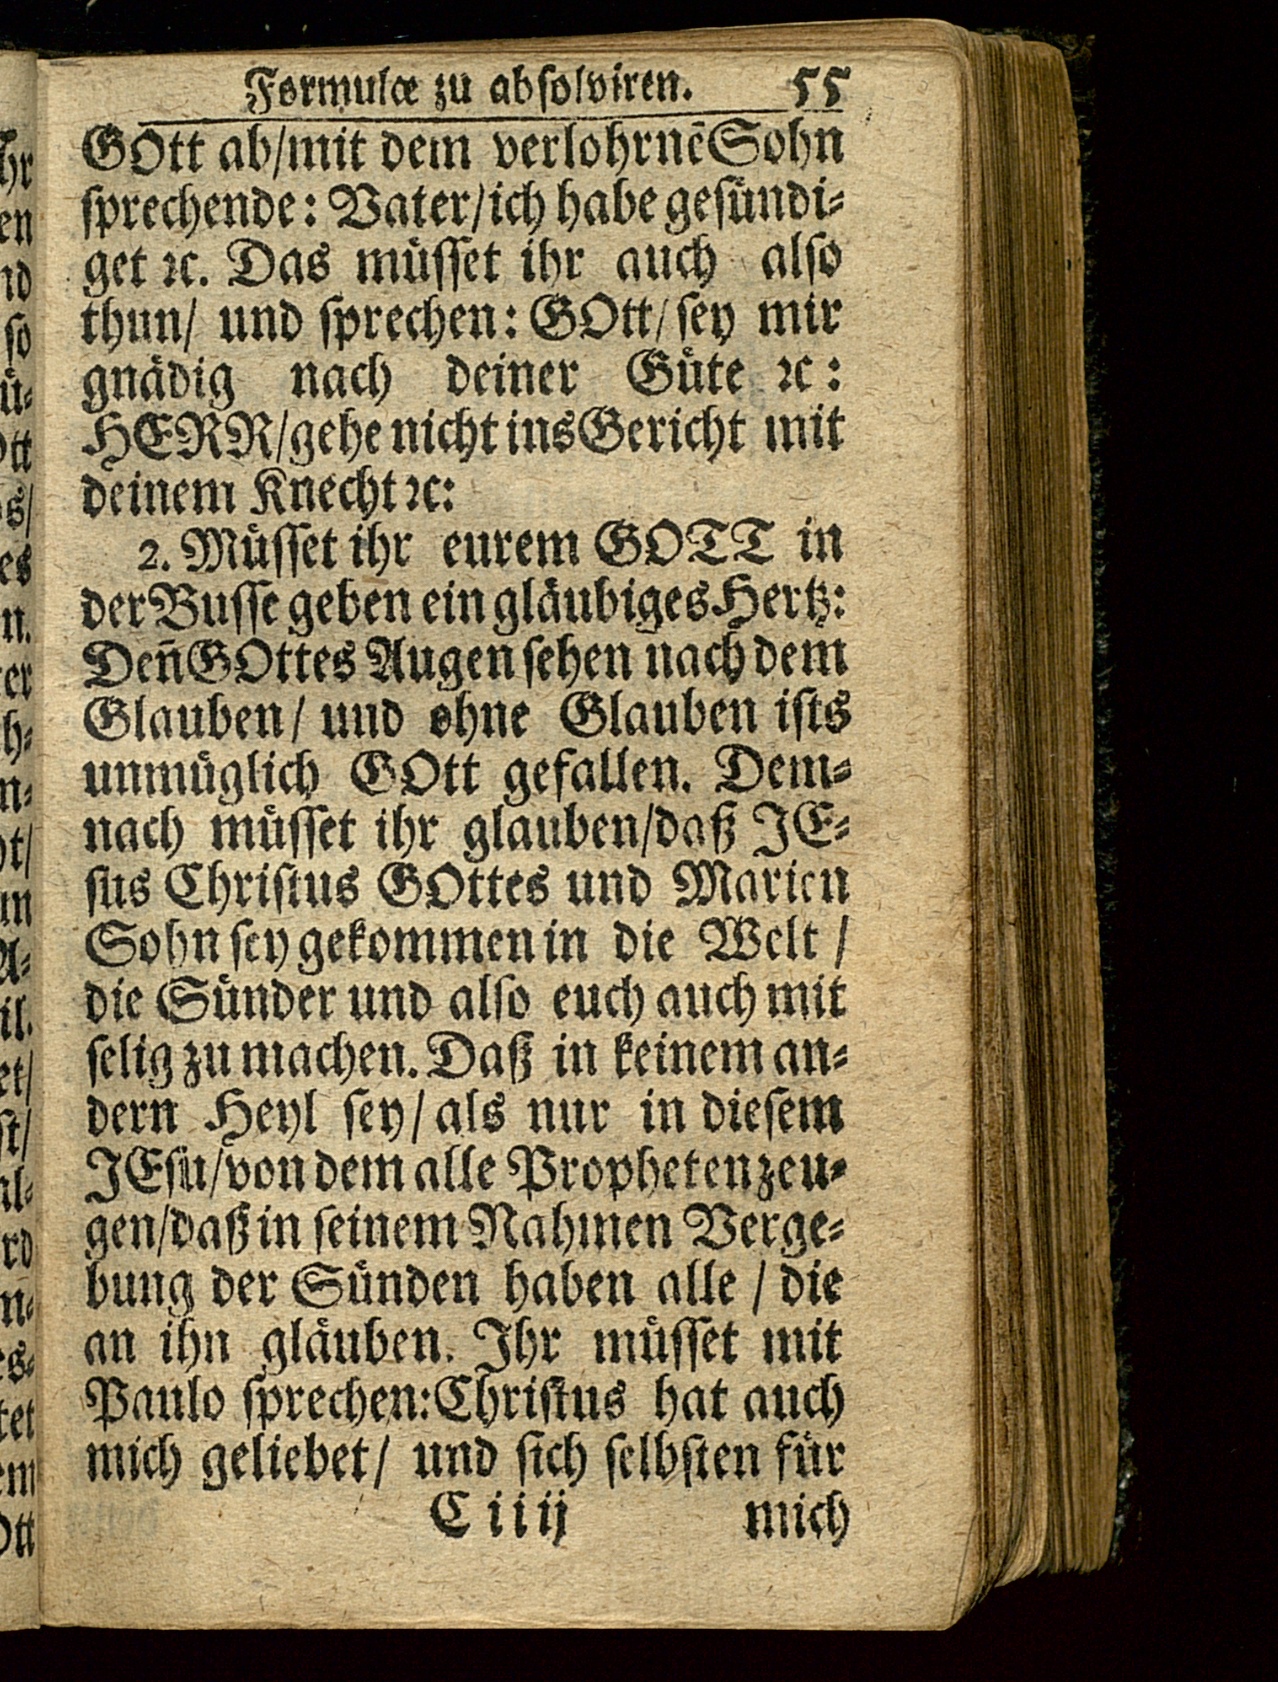 Formulæ zu absolviren. 55
GOtt ab/mit dem verlohrnẽ Sohn
sprechende: Vater/ich habe gesündi⸗
get ꝛc. Das müsset ihr auch also
thun/ und sprechen: GOtt/ sey mir
gnädig nach deiner Güte ꝛc:
HERR/gehe nicht ins Gericht mit
deinem Knecht ꝛc:
2. Müsset ihr eurem GOTT in
der Busse geben ein gläubiges Hertz:
Deñ GOttes Augen sehen nach dem
Glauben/ und ohne Glauben ists
unmüglich GOtt gefallen. Dem⸗
nach müsset ihr glauben/daß JE⸗
sus Christus GOttes und Marien
Sohn sey gekommen in die Welt /
die Sünder und also euch auch mit
selig zu machen. Daß in keinem an⸗
dern Heyl sey/ als nur in diesem
JEsu/von dem alle Propheten zeu⸗
gen/daß in seinem Nahmen Verge⸗
bung der Sünden haben alle / die
an ihn gläuben. Ihr müsset mit
Paulo sprechen: Christus hat auch
mich geliebet/ und sich selbsten für
C iiij mich